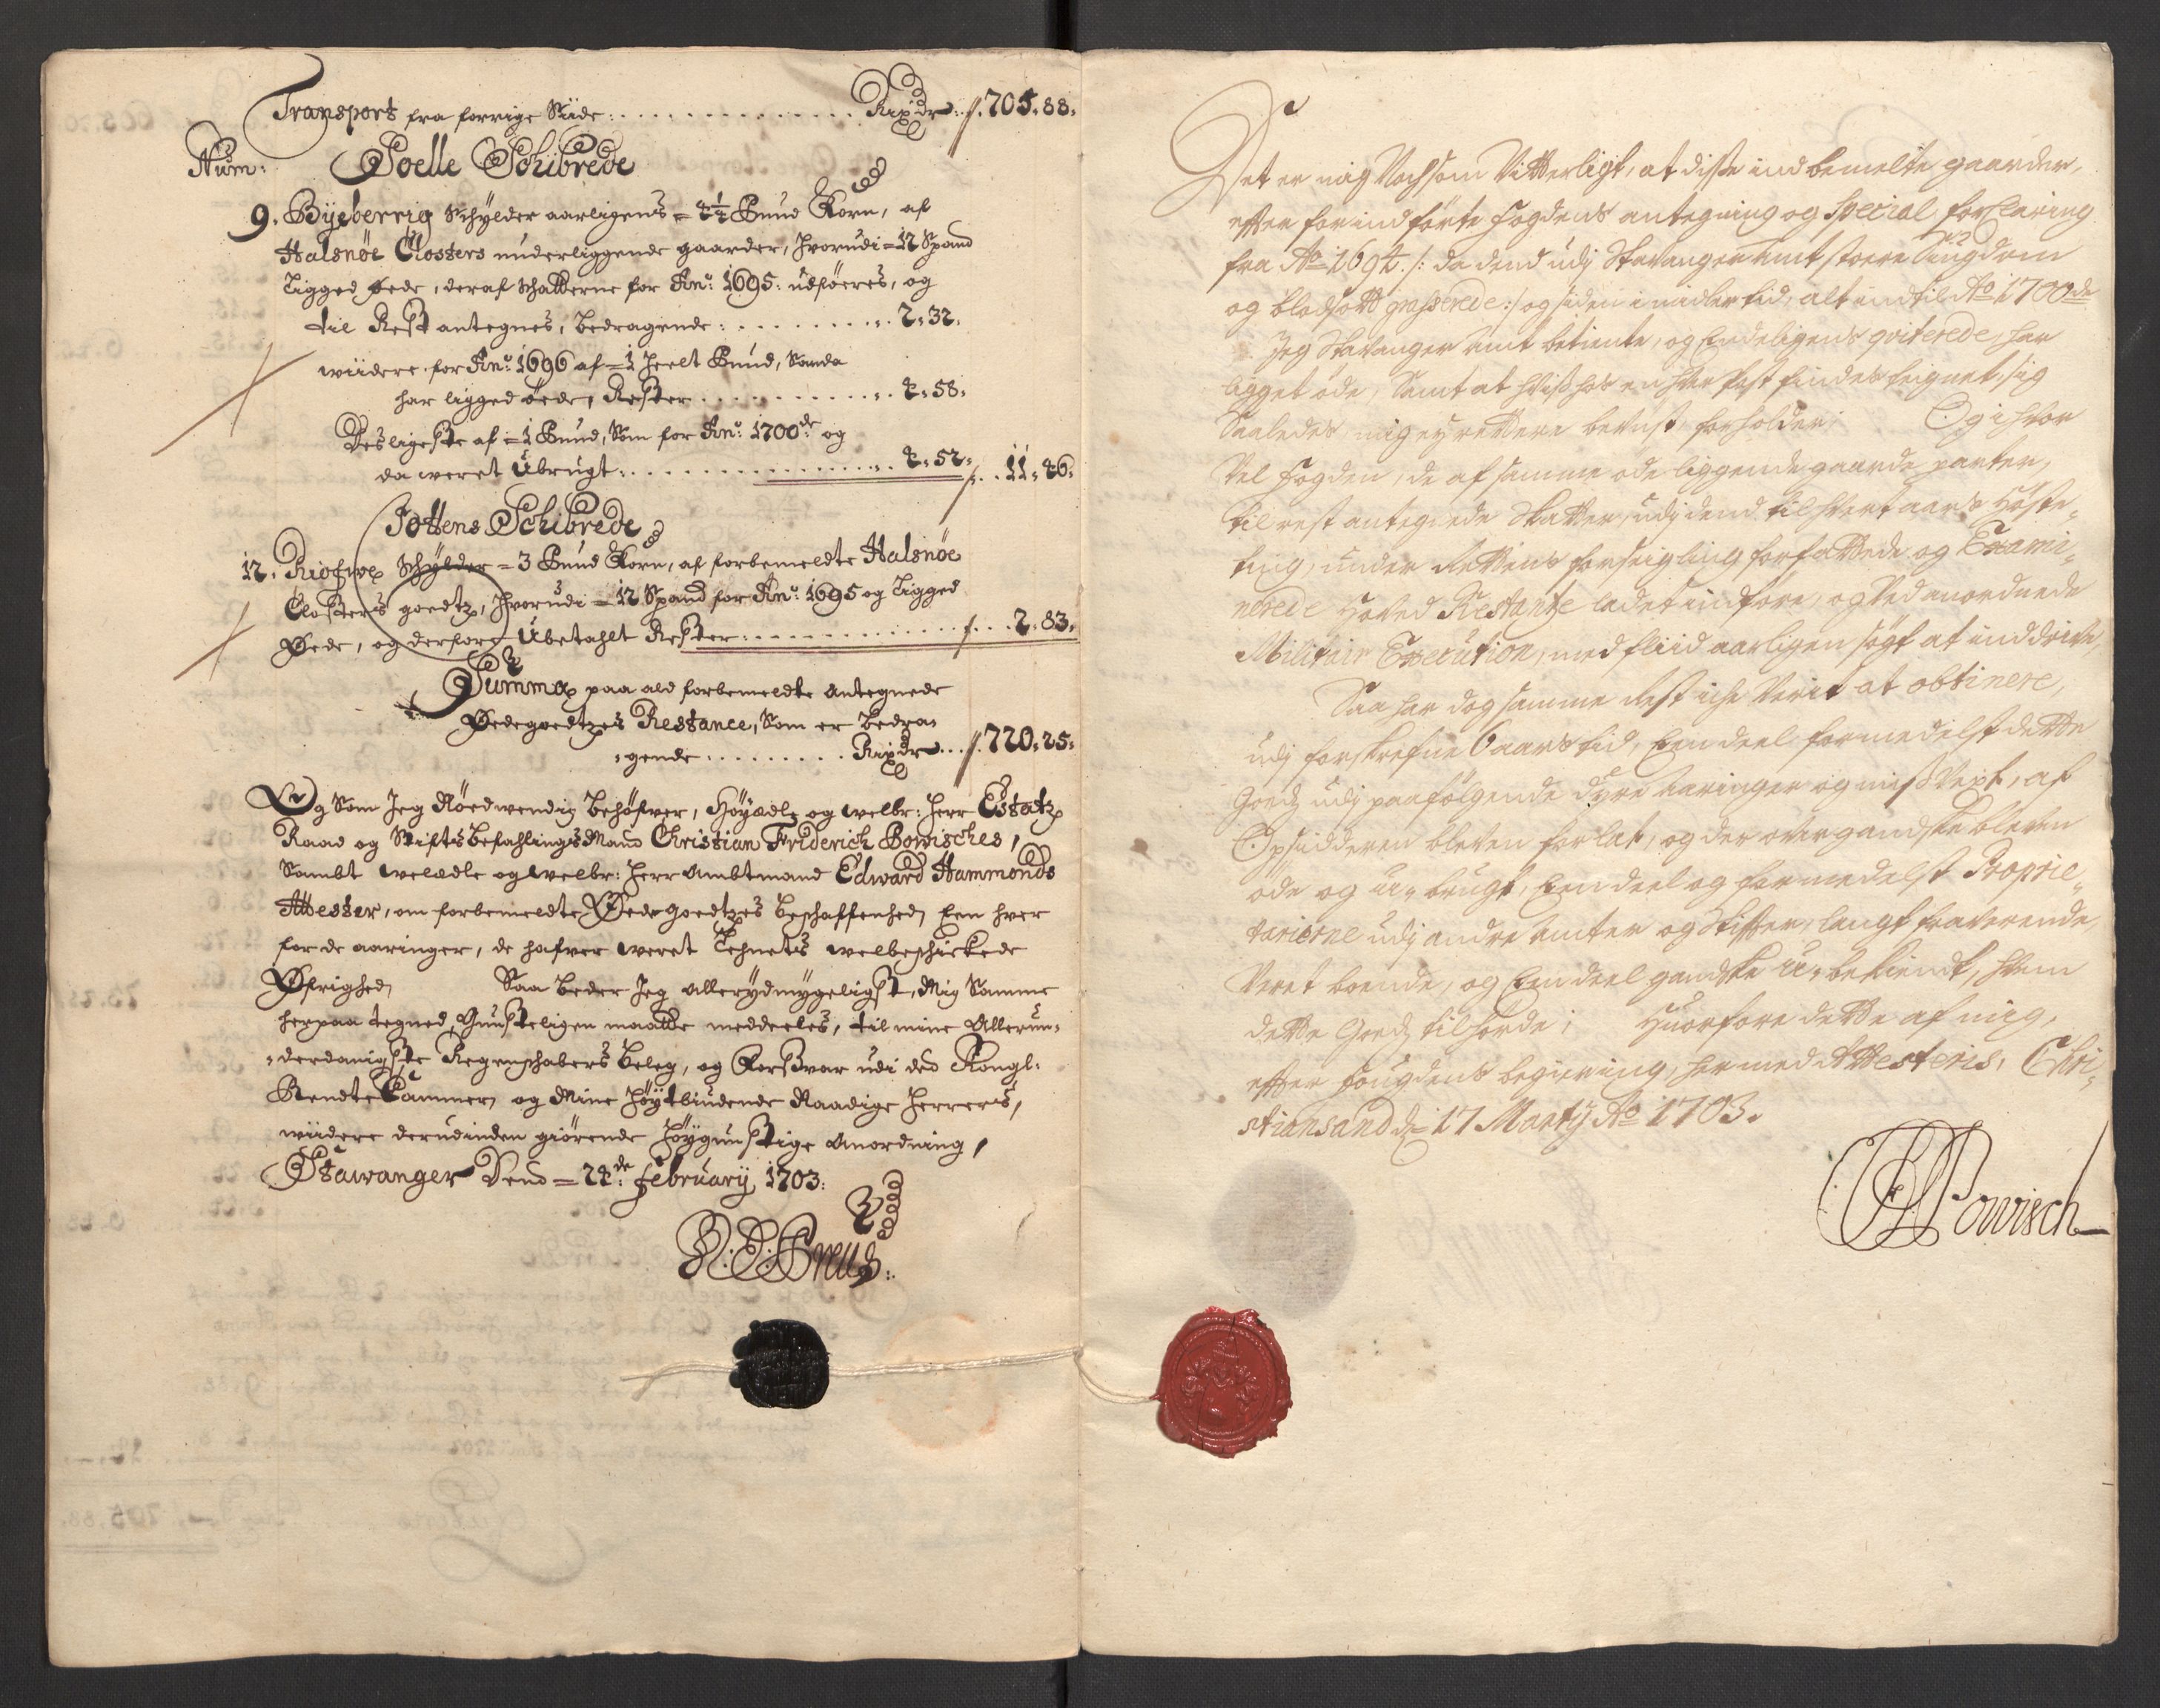 Transport fra forrige Siide: . . . . . . . . . . . . . . Rixdr. 705.88.
Num: Soelle Schibrede
9. Byeberrig Schylder aarligens = 4¼ Pund Korn, af
Halsnøe Closters underliggende gaarder, hvorudi = 12 Spand
Ligged øede, deraf Schatterne for Anº: 1695: udføeres, og
til Rest antegnes, bedragende: . . . . . . . . . 2.32.
wiidere for Anº: 1696 af = 1 heelt Pund, Som da
har ligged øede, Rester . . . . . . . . . . 4.58.
Desligeste af = 1 Pund, Som for Anº: 1700de og
da weret Ubrugt: . . . . . . . . . . . . . . . 4.52. . . 11.46.
Jottens Schibrede
12. Schylder = 3 Pund Korn, af forbemeldte Halsnøe
Closters goedtz, hvorudi = 12 Spand for Anº: 1695 og Ligged
Øede, og derfore Ubetahlt Rester: . . . . . . . . . . . . . . . 2.83.
Summa paa ald forbemeldte Antegnede
Øedegoedtzes Restance, Som er bedra=
=gende . . . . . . . . . Rixdr . . . 720.25.
Og Som Jeg Nøedwendig behøfwer, Høyædle og welbr: Herr Estatz
Raad og StiftsbefahlingsMand Christian Friderich Powisches,
Sambt welædle og welbr: Herr Ambtmand Edward Hammonds
Attester, om forbemeldte Øedegoedtzes beschaffenhed, Een hver
for de aaringer, de hafver weret Lehnets welbeschickede
Øfrighed, Saa beder Jeg Allerydmygeligst, Mig Samme
herpaa tegned, Gunsteligen maatte meddeeles, til mine Allerun=
=derdanigste Regenschabers beleg, og Forsvar udi ded Kongl:
Rendte Cammer, og Mine Høytbiudende Naadige Herrers,
wiidere derudinden giørende Høygunstige Anordning,
Stawanger Dend = 24de February 1703:
Det er mig Noch som Vitterligt, at disse ind bemelte gaarder,
efter for indførte Fogdens antegning og Special forClaring
fra Ao 1694. /: da dend udj Stavanger Amt stoere Siugdom
og blodsott grasserede :/ og siden imidler tid, alt indtil Ao 1700de
Jeg Stavanger Amt betiente, og Endeligens qviterede, har
ligget øde, samt at hvis hos en hver Post findes tegnet, sig
Saaledes, mig ey rettere bevust forholder; Og ihvor
Vel Fogden, de af samme øde liggende gaarde parter,
til rest antegnede Skatter, udj dend til hvert aars Høste=
ting, under Rettens forseigling forfattede og Exami=
nerede Hoved Restantz ladet indføre, og Ved anordnede
Militair Execution, med fliid aarligen søgt at inddrive,
Saa har dog samme Rest iche Verit at obtinere,
udj forskrefne 6 aars tid, Een deel formedelst dette
Goedz udj paafølgende dyre Aaringer og misVext, af
Opsidderen bleven forlat, og der over gandske bleven
øde og u=brugt, Een deel og formedelst Proprie=
tarierne udj andre Amter og Stifter, langt fraverende,
Veret boende, og Een deel gandske u=bekiendt, hvem
dette Goedz tilhørde; Hvorfore dette af mig,
efter Fougdens begiering, hermed Attesteris, Chri=
stiansand d: 17 Martij Ao 1703.
Powisch